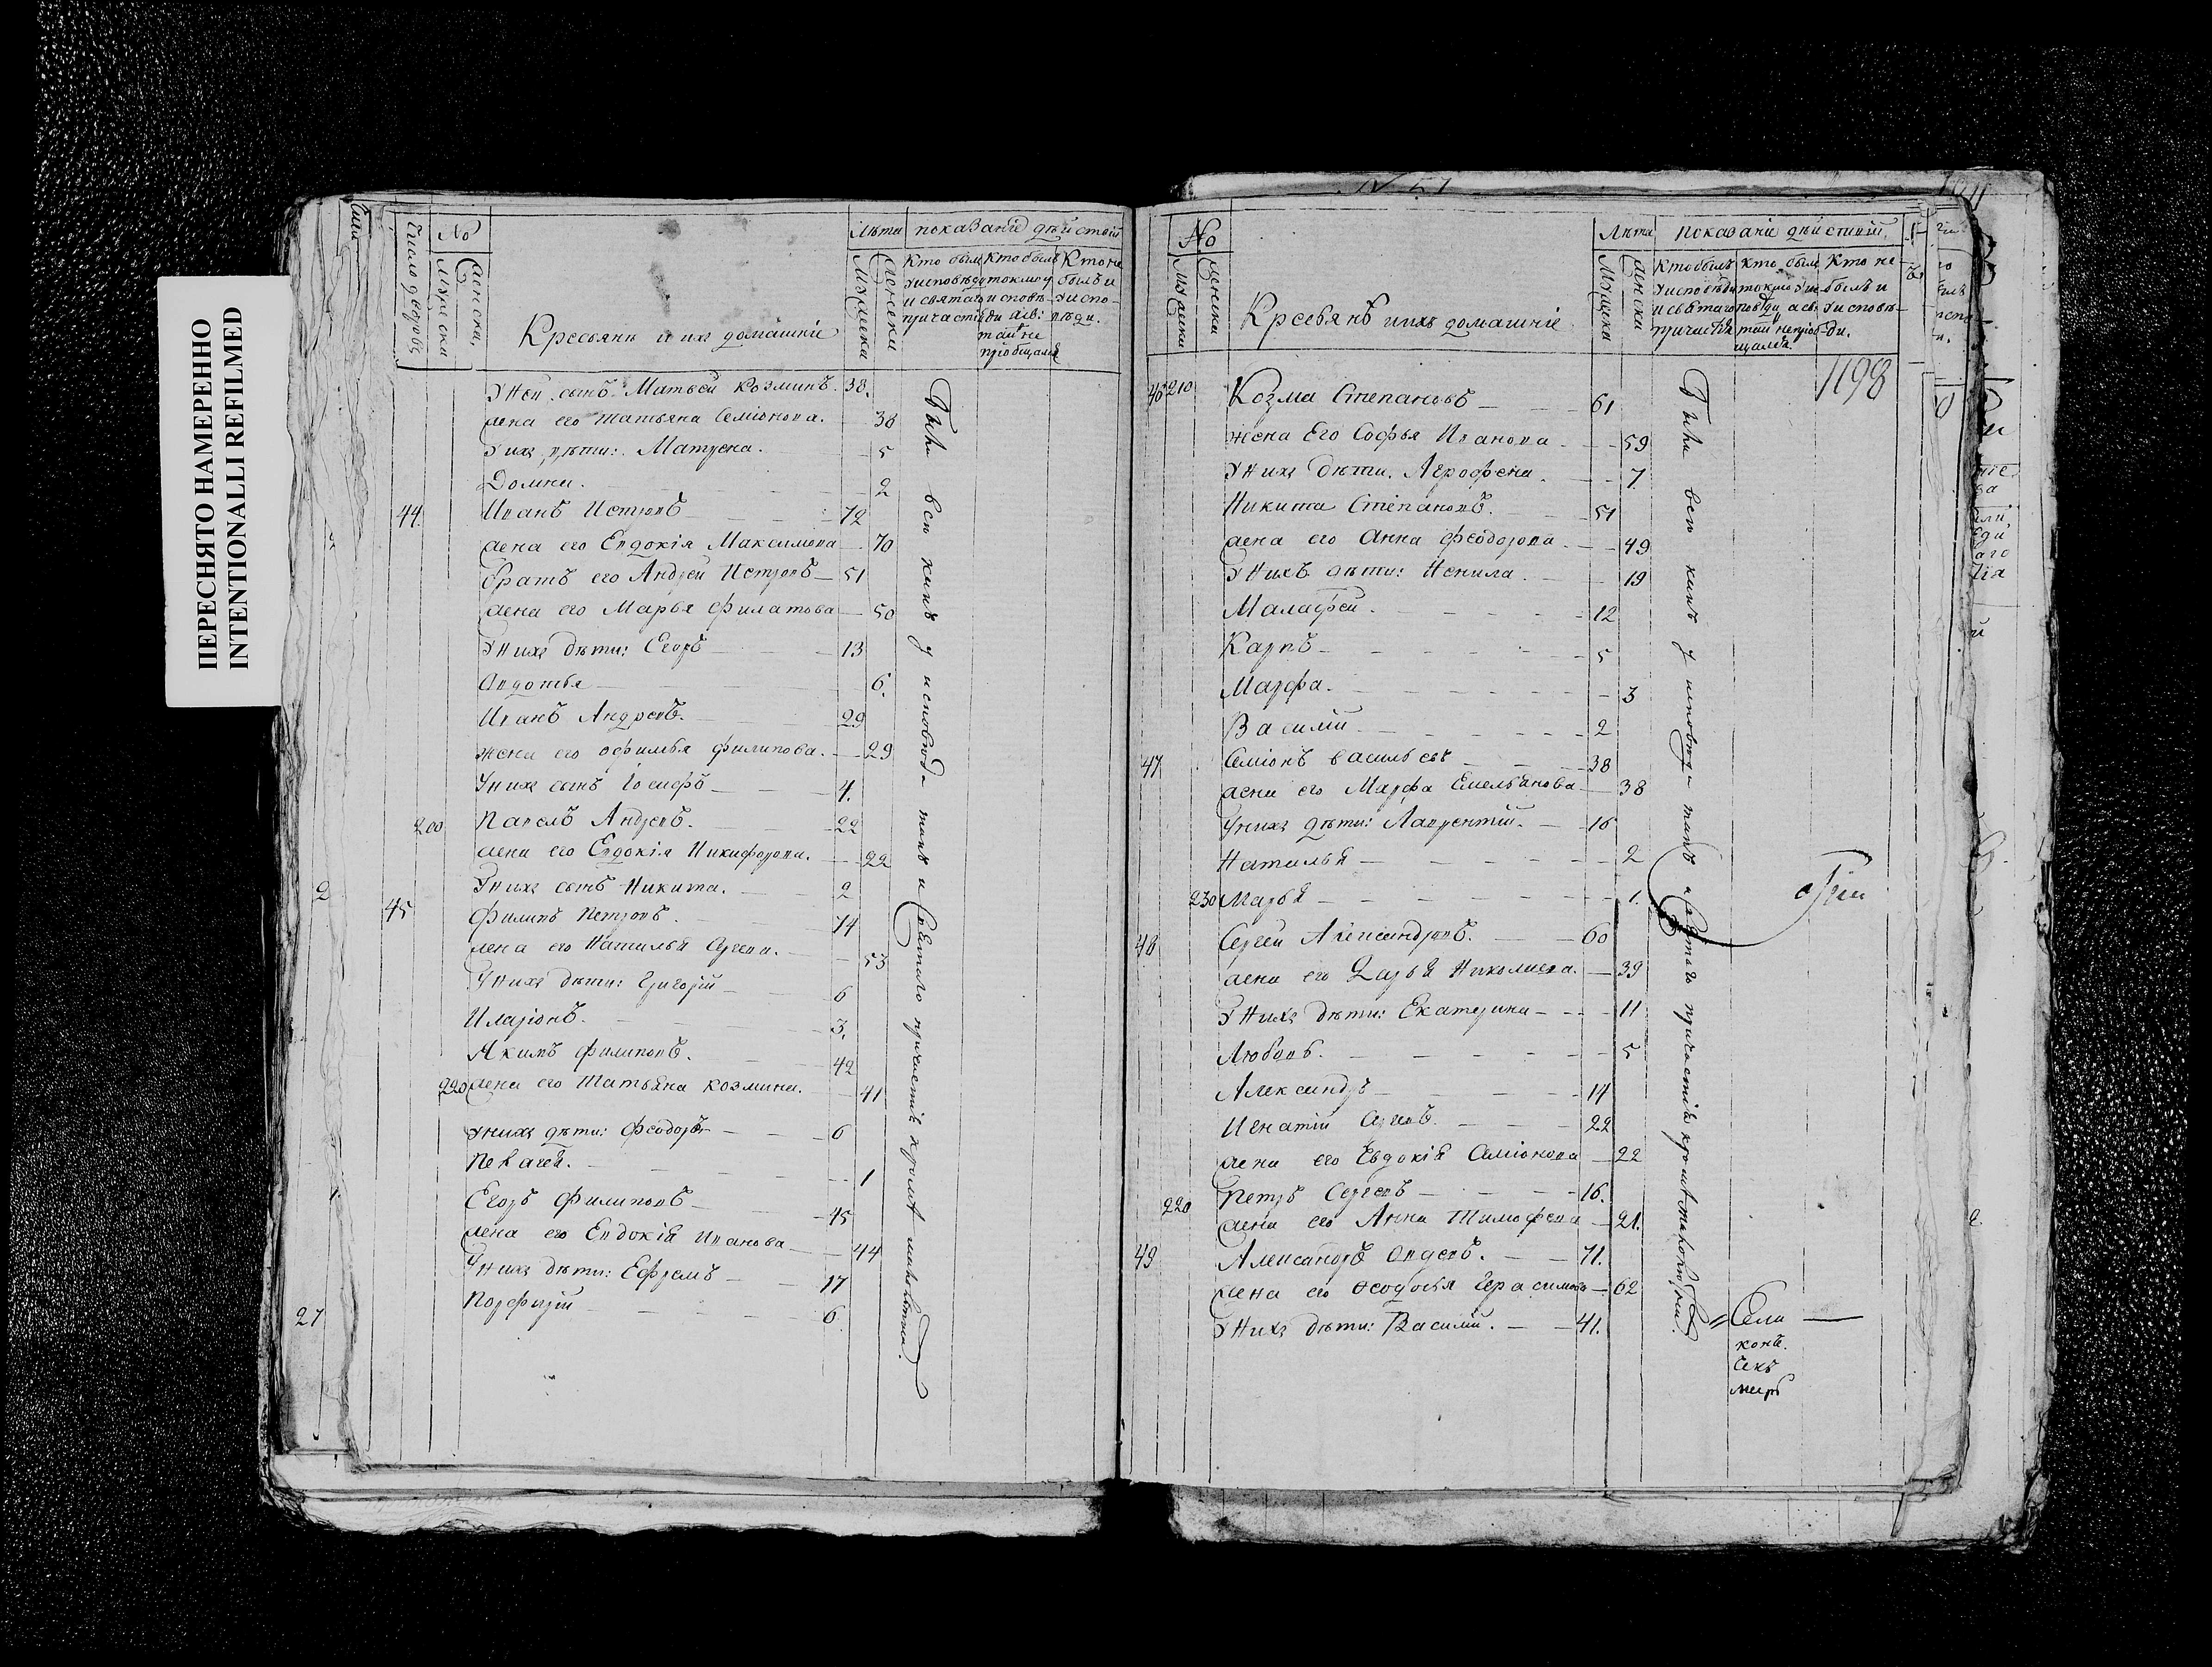 ПЕРЕСНЯТО НАМЕРЕННО
INTENTIONALLI REFILMED
Число дворовъ
No
Мужески
женски,
Крестьянъ и ихъ домашніе
Лѣта
Мужеска
женска
показаніе дѣйствій
Кто былъ у исповѣди и святаго причастія
Кто былъ токмо у исповѣди а св: таин не приобщался
Кто не былъ и у исповѣди.
У Него сынъ Матвей Козминъ. 38.
жена его Татьяна Семіонова. 38
У ихъ дѣти: Матрена. 5
Домна. 2
44. Иванъ Петровъ 72
жена его Евдокія Максимова 70
братъ его Андрей Петровъ 51
жена его Марья Филатова 50
У нихъ дѣти: Егоръ 13
Авдотья 6.
Иванъ Андреевъ. 29
жена его Офимья Филипова. 29
У нихъ сынъ Іосифъ 4.
200 Павелъ Андреевъ. 22
жена его Евдокія Никифорова. 22
У нихъ сынъ Никита. 2
45 Филипъ Петровъ. 74
жена его Наталья Сергеева. 53
У нихъ дѣти: Григорій 6
Иларіонъ. 3.
Якимъ Филиповъ. 42
220 жена его Татьяна Козмина. 41
У нихъ дѣти: Феодоръ 6
Пелагея. 1
Егоръ Филиповъ 45
жена его Евдокія Иванова 44
У нихъ дѣти: Ефремъ 17
Порфирій 6.
2
1.
27
Были всѣ какъ у исповѣди такъ и Святаго причастія кромѣ малолѣтныхъ
No
Мужески
женски
Крестьянъ и ихъ домашніе
Лѣта
Мужеска
женска
Показаніе дѣйствій
Кто былъ у исповѣди и святаго причастія
Кто былъ токмо у исповѣди, а св: таин не приобщался.
Кто не былъ и у исповѣди.
1198
46 210 Козма Степановъ 61
жена Его Софья Иванова 59
У нихъ дѣти. Агрофена. 7.
Никита Степановъ. 51
жена его Анна Феодорова 49
У Нихъ дѣти: Ненила. 19
Малафей. 12
Карпъ 5
Марфа. 3
Василий 2
47 Семіонъ Васильевъ 38
жена его Марфа Емельянова 38
У нихъ дѣти: Лаврентій. 16
Наталья 2
230 Марья 1.
48 Сергей Александровъ. 60
жена его Дарья Николаева. 39
У Нихъ дѣти: Екатерина 11
Любовь. 5
Александръ 14
Игнатій Сергеевъ. 22
жена его Евдокія Семіонова 22
220 Петръ Сергеевъ 16.
жена его Анна Тимофеева 21.
49 Александръ Авдеевъ. 71.
жена его Феодосья Герасимова 62
У Нихъ дѣти: Василій. 41.
Были всѣ какъ у исповѣди такъ и Святаго причастія кромѣ малолѣтныхъ